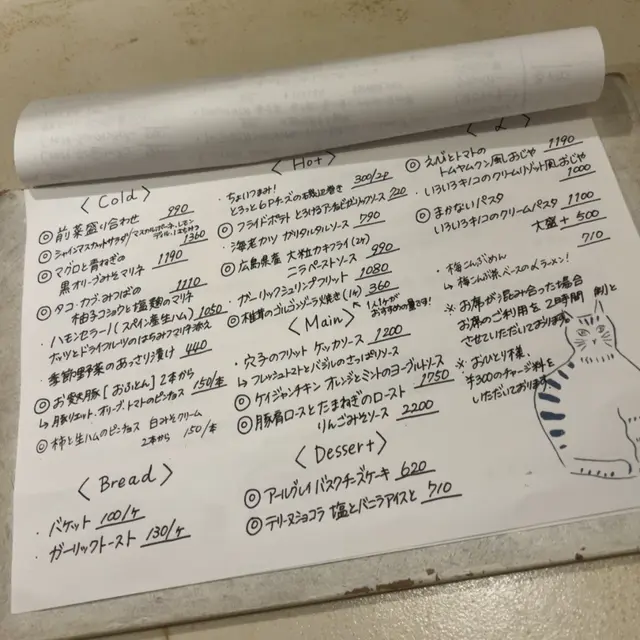 〈 Cold 〉
◎ 前菜盛り合わせ 990
◎ シャインマスカットサラダ/マスカルポーネ、レモン 1360
◎ マグロと青ねぎの 1190
黒オリーブみそマリネ
◎ タコ・カブ・みつばの 1110
柚子コショウと塩麹のマリネ
・ハモンセラーノ(スペイン産生ハム) 1050
ナッツとドライフルーツのはちみつマリネ添え
・季節野菜のあっさり漬け 440
◎ お豚[おぶたん] 2本から 150/本
↳ 豚リエット、オリーブ、トマトのピンチョス
◎ 柿と生ハムのピンチョス 白みそクリーム
2本から 150/本
〈 Bread 〉
・バケット 100/ヶ
・ガーリックトースト 130/ヶ
〈 Hot 〉
・ちょいつまみ!
とろっと6Pチーズの磯辺巻き 300/2P
◎ フライドポテト とろけるソース 720
・海老カツ タルタルソース 790
◎ 広島県産 大粒カキフライ(2ヶ) 990
ニラペーストソース
・ガーリックシュリンプフリット 1080
◎ 椎茸のゴルゴンゾーラ焼き(1ヶ) 360
1人1ヶが
おすすめの量です!
〈 Main 〉
・穴子のフリット ケッカソース 1200
↳ フレッシュトマトとバジルのさっぱりソース
◎ ケイジャンチキン オレンジとミントのヨーグルトソース 1750
◎ 豚肩ロースとたまねぎのロースト
りんごみそソース 2200
〈 Dessert 〉
◎ アールグレイ バスクチーズケーキ 620
◎ テリーヌショコラ 塩とバニラアイスと 710
〈 α 〉
◎ えびとトマトの 1190
トムヤムクン風おじや
・いろいろキノコのクリームリゾット風おじや 1000
◎ まかないパスタ 1100
いろいろキノコのクリームパスタ
大盛 + 500
・梅こんぶめん 710
↳ 梅こんぶ茶ベースのαラーメン!
※ お席が混み合った場合
お席のご利用を2時間制と
させていただいております。
※ おひとり様、
¥300のチャージ料を
いただいております。